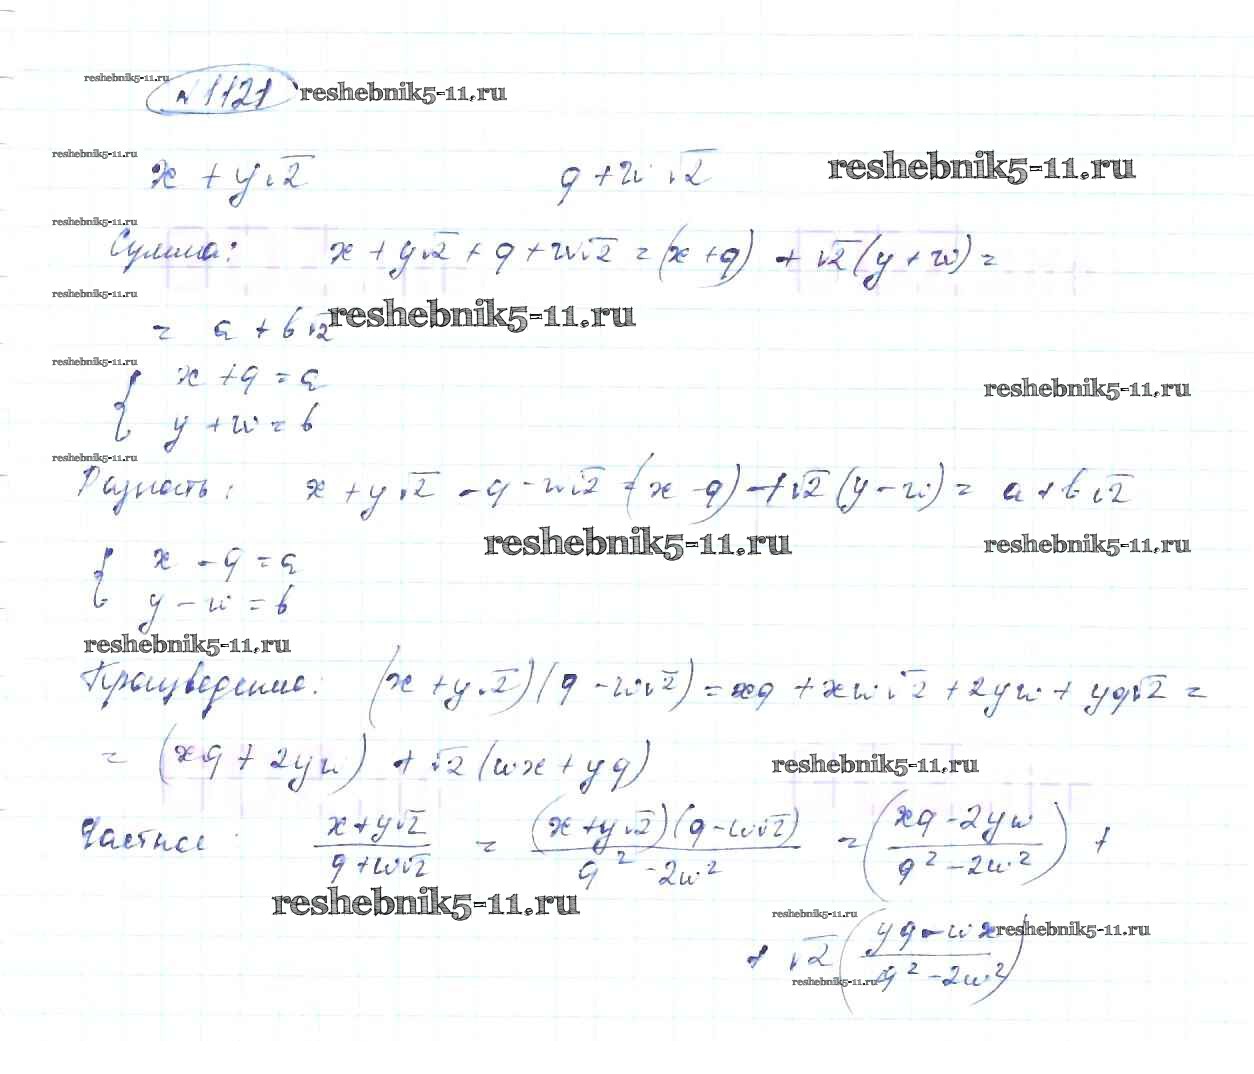 reshebnik5-11.ru
№1121 reshebnik5-11.ru
reshebnik5-11.ru
x + y√2 q + w√2 reshebnik5-11.ru
reshebnik5-11.ru
Сумма: x + y√2 + q + w√2 = (x + q) + √2(y + w) =
reshebnik5-11.ru
= a + b√2 reshebnik5-11.ru
reshebnik5-11.ru
{ x + q = a
reshebnik5-11.ru
y + w = b
reshebnik5-11.ru
Разность: x + y√2 - q - w√2 = (x - q) + √2(y - w) = a + b√2
reshebnik5-11.ru reshebnik5-11.ru
{ x - q = a
y - w = b
reshebnik5-11.ru
Произведение: (x + y√2)(q - w√2) = xq + xw√2 + 2yw + yq√2 =
= (xq + 2yw) + √2(wx + yq) reshebnik5-11.ru
Частное: (x+y√2)/(q+w√2) = (x+y√2)(q-w√2)/(q²-2w²) = ((xq-2yw)/(q²-2w²)) +
reshebnik5-11.ru
reshebnik5-11.ru
+ √2((yq-wx)/(q²-2w²)) reshebnik5-11.ru
reshebnik5-11.ru